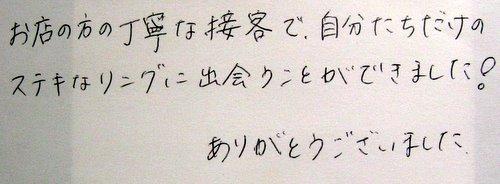 お店の方の丁寧な接客で、自分たちだけの
ステキなリングに出会うことができました！
ありがとうございました